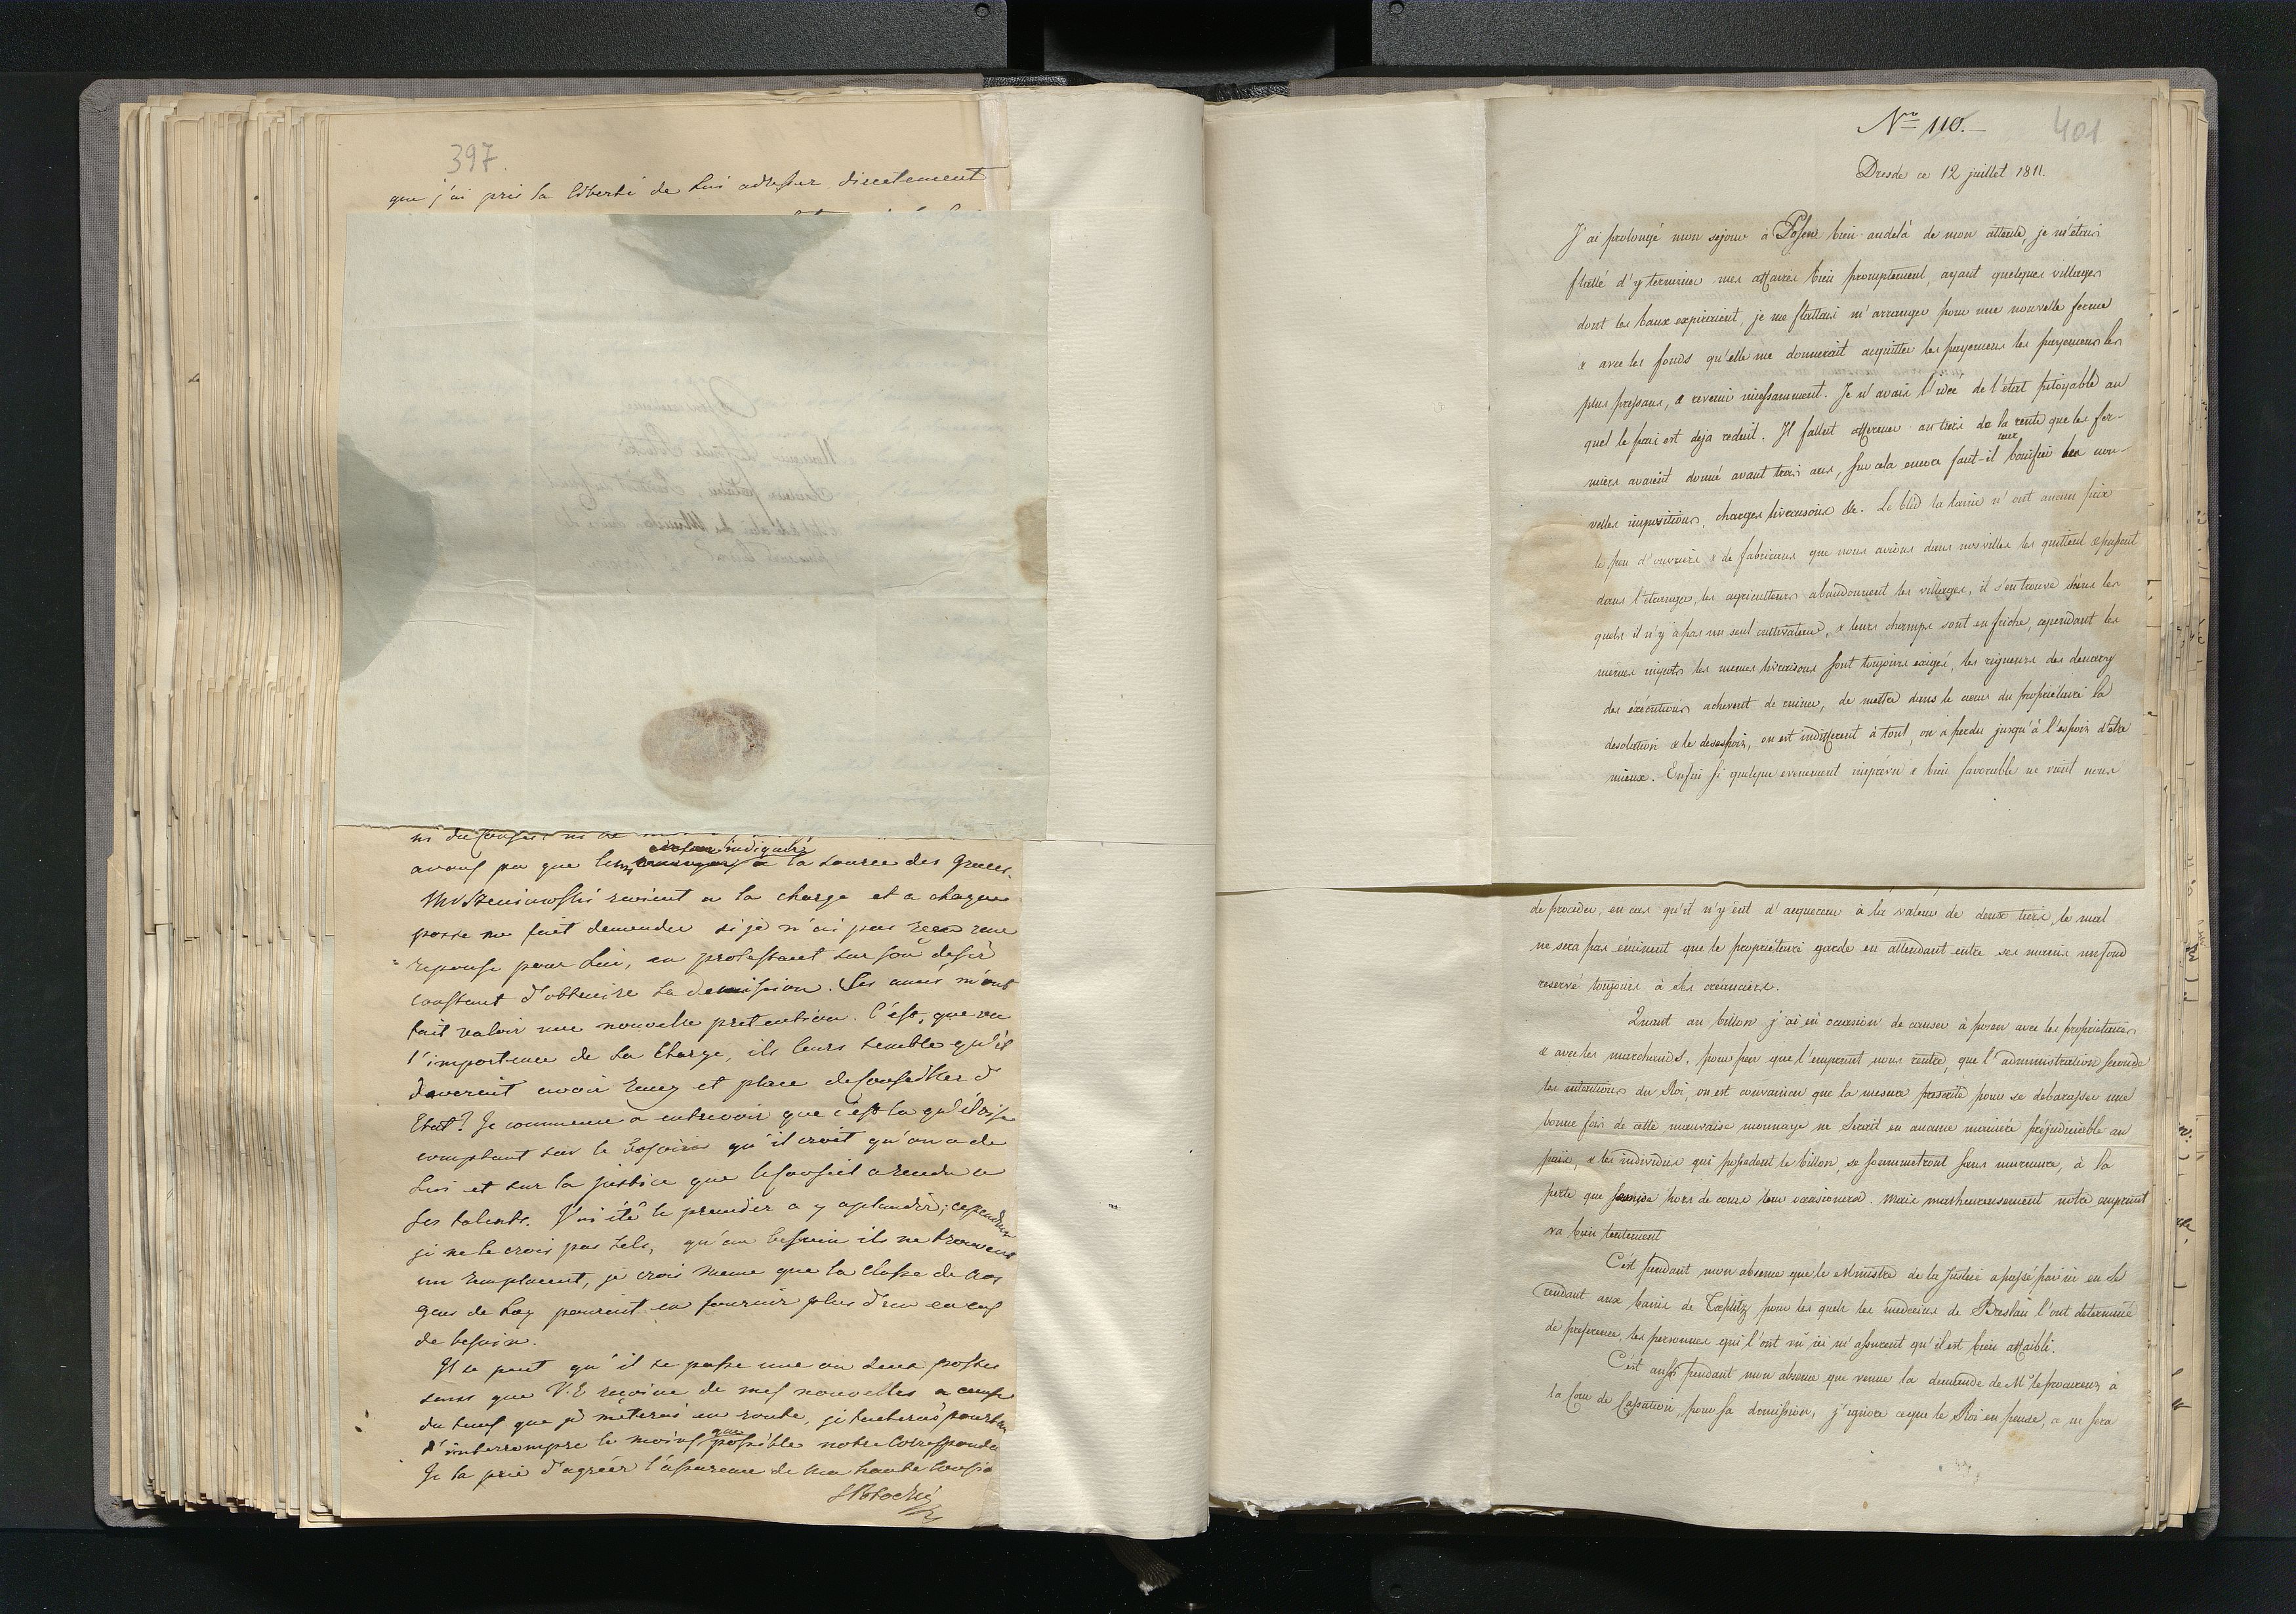 397.
que j'ai pris la liberté de Lui adresser directement
avons pu que la source des Graces.
revient a la charge et a chaque
poste me fait demander si je n'ai pas recu une
reponse pour Lui, en protestant sur son desir
constant d'obtenire sa demission. Ses amis m'ont
fait valoir une nouvelle pretention. C'est, que vu
l'importence de sa Charge, ils leurs semble qu'il
daverait avoir rang et place de Conseiller d'
Etat? Je commence a entrevoir que c'est la qu'il vise
comptant sur le besoin qu'il croit qu'on a de
Lui et sur la justice que le Conseil a rendu a
ses talents. J'ai été le premier a y aplaudir; cependant
je ne le crois pas tels, qu'au besoin ils ne trouvent
un remplacent, je crois meme que la classe de nos
gens de Loy pouroit en fournir plus d'un en cas
de besoin.
Il se peut qu'il se passe une ou deux postes
sans que V.E reçoive de mes nouvelles a cause
du tems que je meterai en route, je tacherai pourtant
d'interrompre le moins que possible notre Corresponda
Je la prie d'agréer l'assurance de ma haute Consid
Nro 110.
401
Dresde ce 12 juillet 1811.
J'ai prolongé mon sejour à Posen bien-audelà de mon attente, je m'étais
flatté d'y terminer mes affaires bien promptement, ayant quelques villages
dont les baux expiraient, je me flattais m'arranger pour une nouvelle ferme
& avec les fonds qu'elle me donnerait acquitter les payemens les payemens les
plus pressans, & revenir incessamment. Je n'avais l'idée de l'état pitoyable au
quel le pais est deja reduit. Il fallut affermer au tiers de la rente que les fer-
miers avaient donné avant trois ans, sur cela encore faut-il bonifier les nou-
velles impositions, charges livraisons &c. Le bléd la laine n'ont aucun prix
le peu d'ouvriers & de fabricans que nous avions dans nos villes les quittent & passent
dans l'etranger, les agriculteurs abandonnent les villages, il s'en trouve dans les
quels il n'y a pas un seul cultivateur, & leurs champs sont en friche, cependant les
memes impots les memes livraisons sont toujours exigés, les rigueurs des
des éxécutions achevent de ruiner, de mettre dans le coeur du propriétaire la
desolation & le desespoir, on est indifferent à tout, on a perdu jusqu'à l'espoir d'etre
mieux. Enfin si quelque evenement imprévu & bien favorable ne vient nous
de proceder, en cas qu'il n'y eut d'acquereur à la valeur de deux tiers, le mal
ne sera pas éminent que le propriétaire garde en attendant entre ses mains un fond
reservé toujours à ses créanciers.
Quant au billon j'ai eu occasion de causer à posen avec les propriétaires
& avec les marchands. pour peu que l'emprunt nous rentre, que l'administration seconde
les intentions du Roi, on est convaincu que la mesure prescrite pour se debarasser une
bonne fois de cette mauvaise monnaye ne serait en aucune maniere préjudiciable au
pais, & les individus qui possedent le billon, se soumettront sans murmure, à la
perte que hors de cours leur occasionera. mais malheureusement notre emprunt
va bien lentement
C'est pendant mon absence que le Ministre de la Justice a passé par ici en se
rendant aux bains de Toeplitz pour les quels les medecins de Breslau l'ont determiné
de preference, les personnes qui l'ont vu ici m'assurent qu'il est bien affaibli.
C'est aussi pendant mon absence que venue la demande de Mr le procureur à
la Cour de Cassation, pour sa demission, j'ignore ce que le Roi en pense, ce ne sera